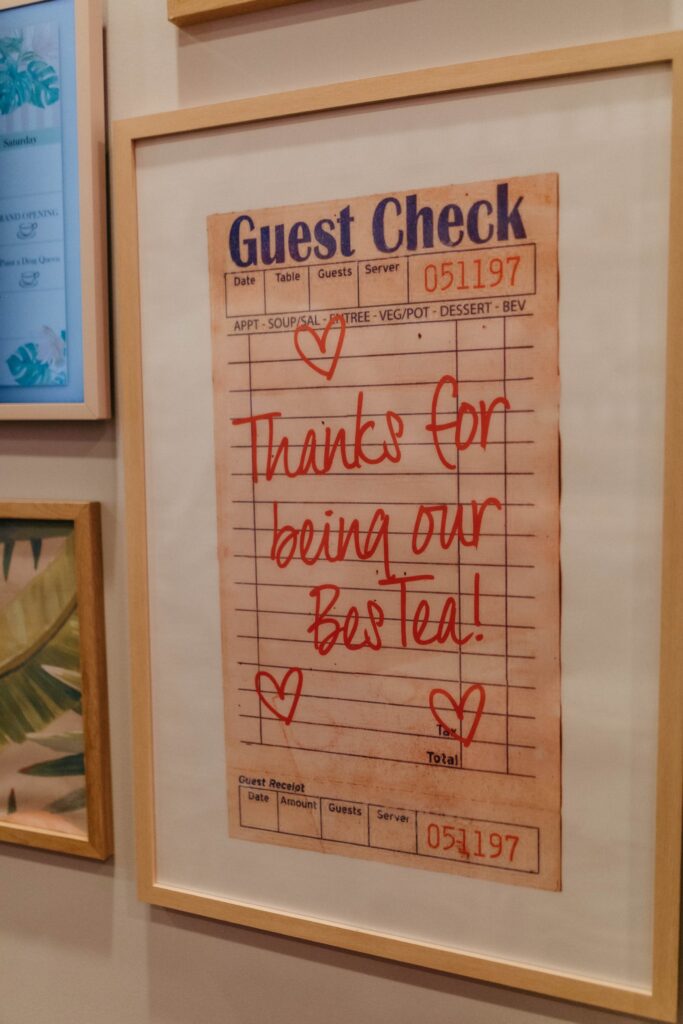 Saturday
GRAND OPENING
Guest Check
Date Table Guests Server 051197
APPT - SOUP/SAL - ENTREE - VEG/POT - DESSERT - BEV
Thanks for
being our
BesTea!
Tax
Total
Guest Receipt
Date Amount Guests Server 051197